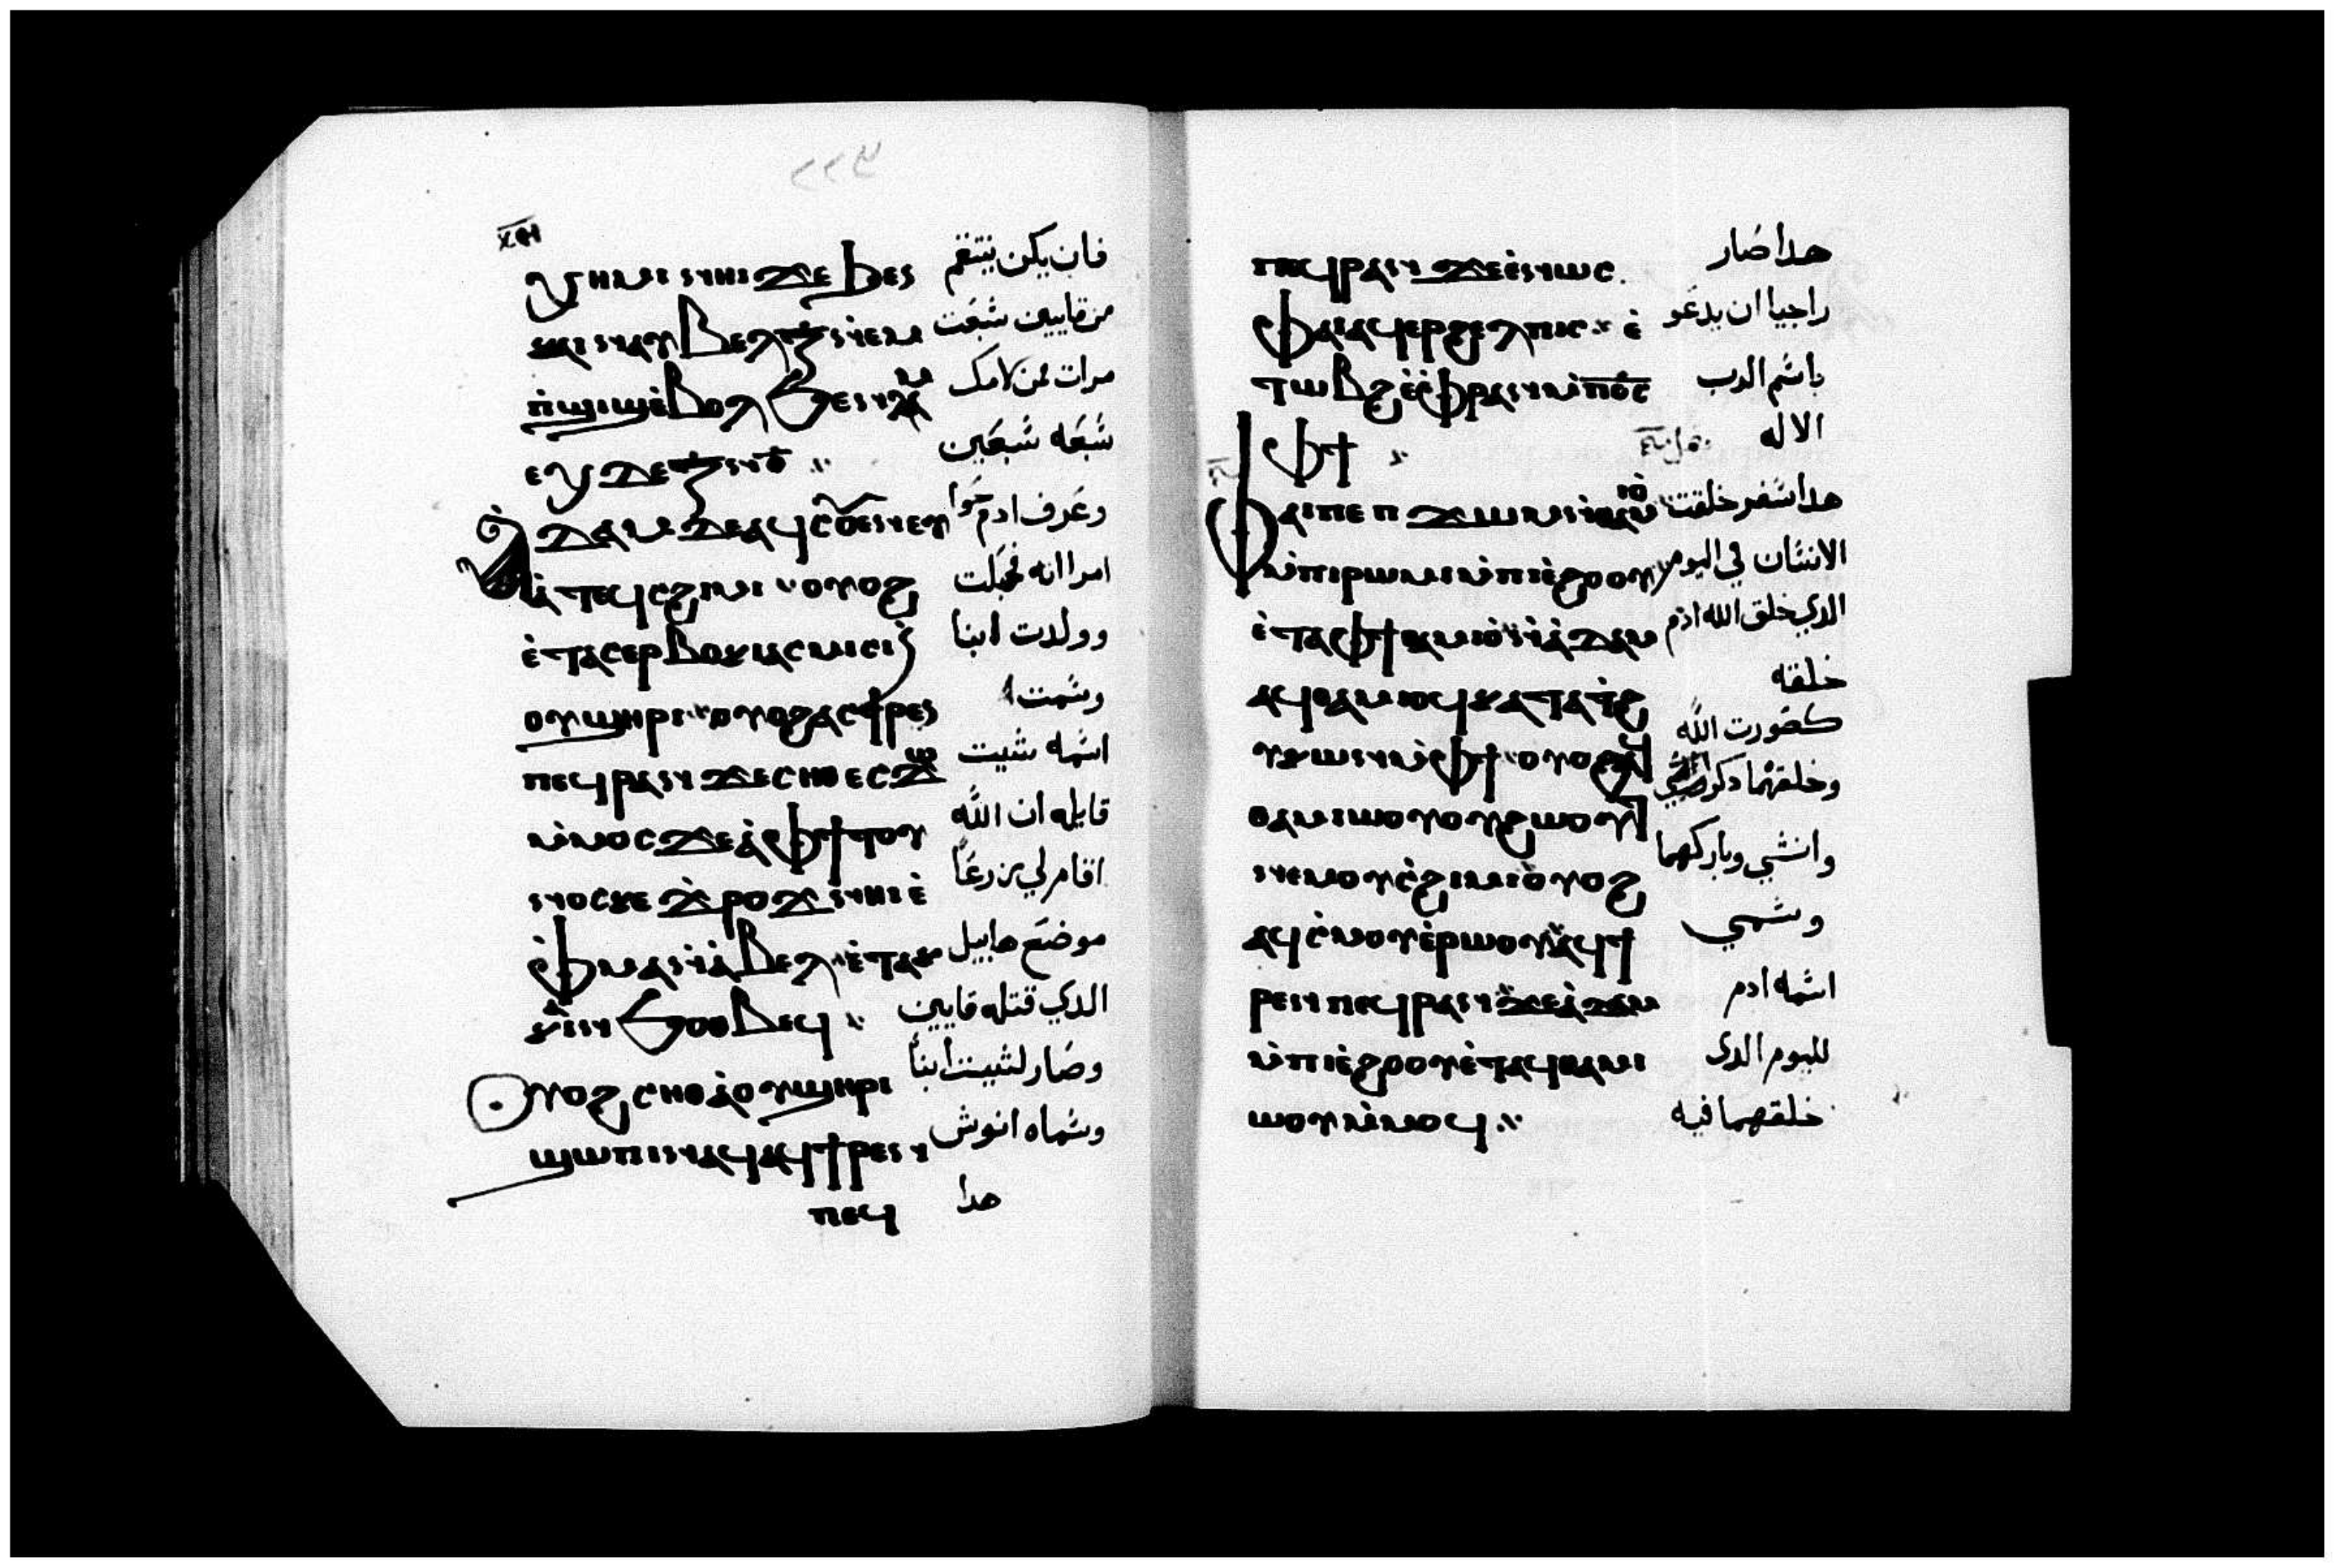 ⲭⲉⲛ
ⲛⲏⲓ ϫⲉ ϧⲉⲛ فان يكن ينتقم
ⲕⲁⲓⲛ من قايين سبعت
ⲙ̀ⲡ̀ϣⲓϣ ⲉ̀ⲃⲟⲗ مرات فمن لامك
سبعه سبعين
ⲁ̀ⲇⲁⲙ ⲇⲉ ⲁϥⲥⲟⲩⲉⲛ ⲉⲩ وعرف ادم حوا
ⲁ̀ ⲧⲉϥⲥϩⲓⲙⲓ ⲟⲩⲟϩ امراانه فحبلت
ⲉ̀ⲧⲁⲥⲉⲣⲃⲟⲕⲓ ⲁⲥⲙⲓⲥⲓ ⲛ̀ وولدت ابنا
ⲟⲩϣⲏⲣⲓ ⲟⲩⲟϩ ⲁⲥϯⲣⲉⲛ وسمت ا
ⲡⲉϥⲣⲁⲛ ϫⲉ ⲥⲏⲑ ⲉⲥϫⲱ اسمه شيت
ⲙ̀ⲙⲟⲥ ϫⲉ ⲁ̀ ⲫϯ ⲧⲟⲩ قايله ان الله
ⲛⲟⲥ ⲕⲉ ϫ̀ⲣⲟϫ ⲛⲏⲓ ⲉ̀ اقام لي زرعا
ⲫ̀ⲙⲁ ⲛ̀ⲁ̀ⲃⲉⲗ ⲉ̀ⲧⲁ ⲕⲁ موضع هابيل
ⲓⲛ ϧⲟⲑⲃⲉϥ الدي قتله قايين
ⲟⲩⲟϩ ⲥⲏⲑ ⲁ̀ ⲟⲩϣⲏⲣⲓ وصار لشيت ابنا
ϣⲱⲡⲓ ⲛⲁϥ ⲁϥϯⲣⲉⲛ وسماه انوش
ⲡⲉϥ هدا
ⲡⲉϥⲣⲁⲛ ϫⲉ ⲉ̀ⲛⲱⲥ هدا صار
ⲫⲁⲓ ⲁϥⲉⲣϩⲉⲗⲡⲓⲥ ⲉ̀ راجيا ان يدعو
ⲧⲱⲃϩ ⲉ̀ⲫ̀ⲣⲁⲛ ⲙ̀ⲡⲟ̅ⲥ̅ باسم الرب
ⲫϯ الاله
ⲫⲁⲓ ⲡⲉ ⲡϫⲱⲙ ⲛ̀ⲑⲁⲙⲓⲟ̀ هدا سفر خلقت
ⲙ̀ⲡⲓⲣⲱⲙⲓ ⲙ̀ⲡⲓⲉ̀ϩⲟⲟⲩ الانسان في اليوم
ⲉ̀ⲧⲁ ⲫϯ ⲑⲁⲙⲓⲟ̀ ⲛ̀ⲁ̀ⲇⲁⲙ الدي خلق الله ادم
ⲁϥⲑⲁⲙⲓⲟϥ ⲕⲁⲧⲁ ⲧ̀ϩ خلقه
ⲩⲕⲱⲛ ⲙ̀ⲫϯ ⲟⲩⲟϩ ⲁϥ كصورت الله
ⲑⲁⲙⲓⲱⲟⲩ ⲟⲩϩⲱⲟⲩⲧ وخلقهما دكر
ⲛⲉⲙ ⲟⲩⲥ̀ϩⲓⲙⲓ ⲟⲩⲟϩ وانثي وباركهما
ⲁϥⲥ̀ⲙⲟⲩ ⲉ̀ⲣⲱⲟⲩ ⲁϥϯ وسمي
ⲣⲉⲛ ⲡⲉϥⲣⲁⲛ ϫⲉ ⲁ̀ⲇⲁⲙ اسمه ادم
ⲙ̀ⲡⲓⲉ̀ϩⲟⲟⲩ ⲉ̀ⲧⲁϥⲑⲁⲙⲓ لليوم الدى
ⲱⲟⲩ ⲙ̀ⲙⲟϥ خلقهما فيه